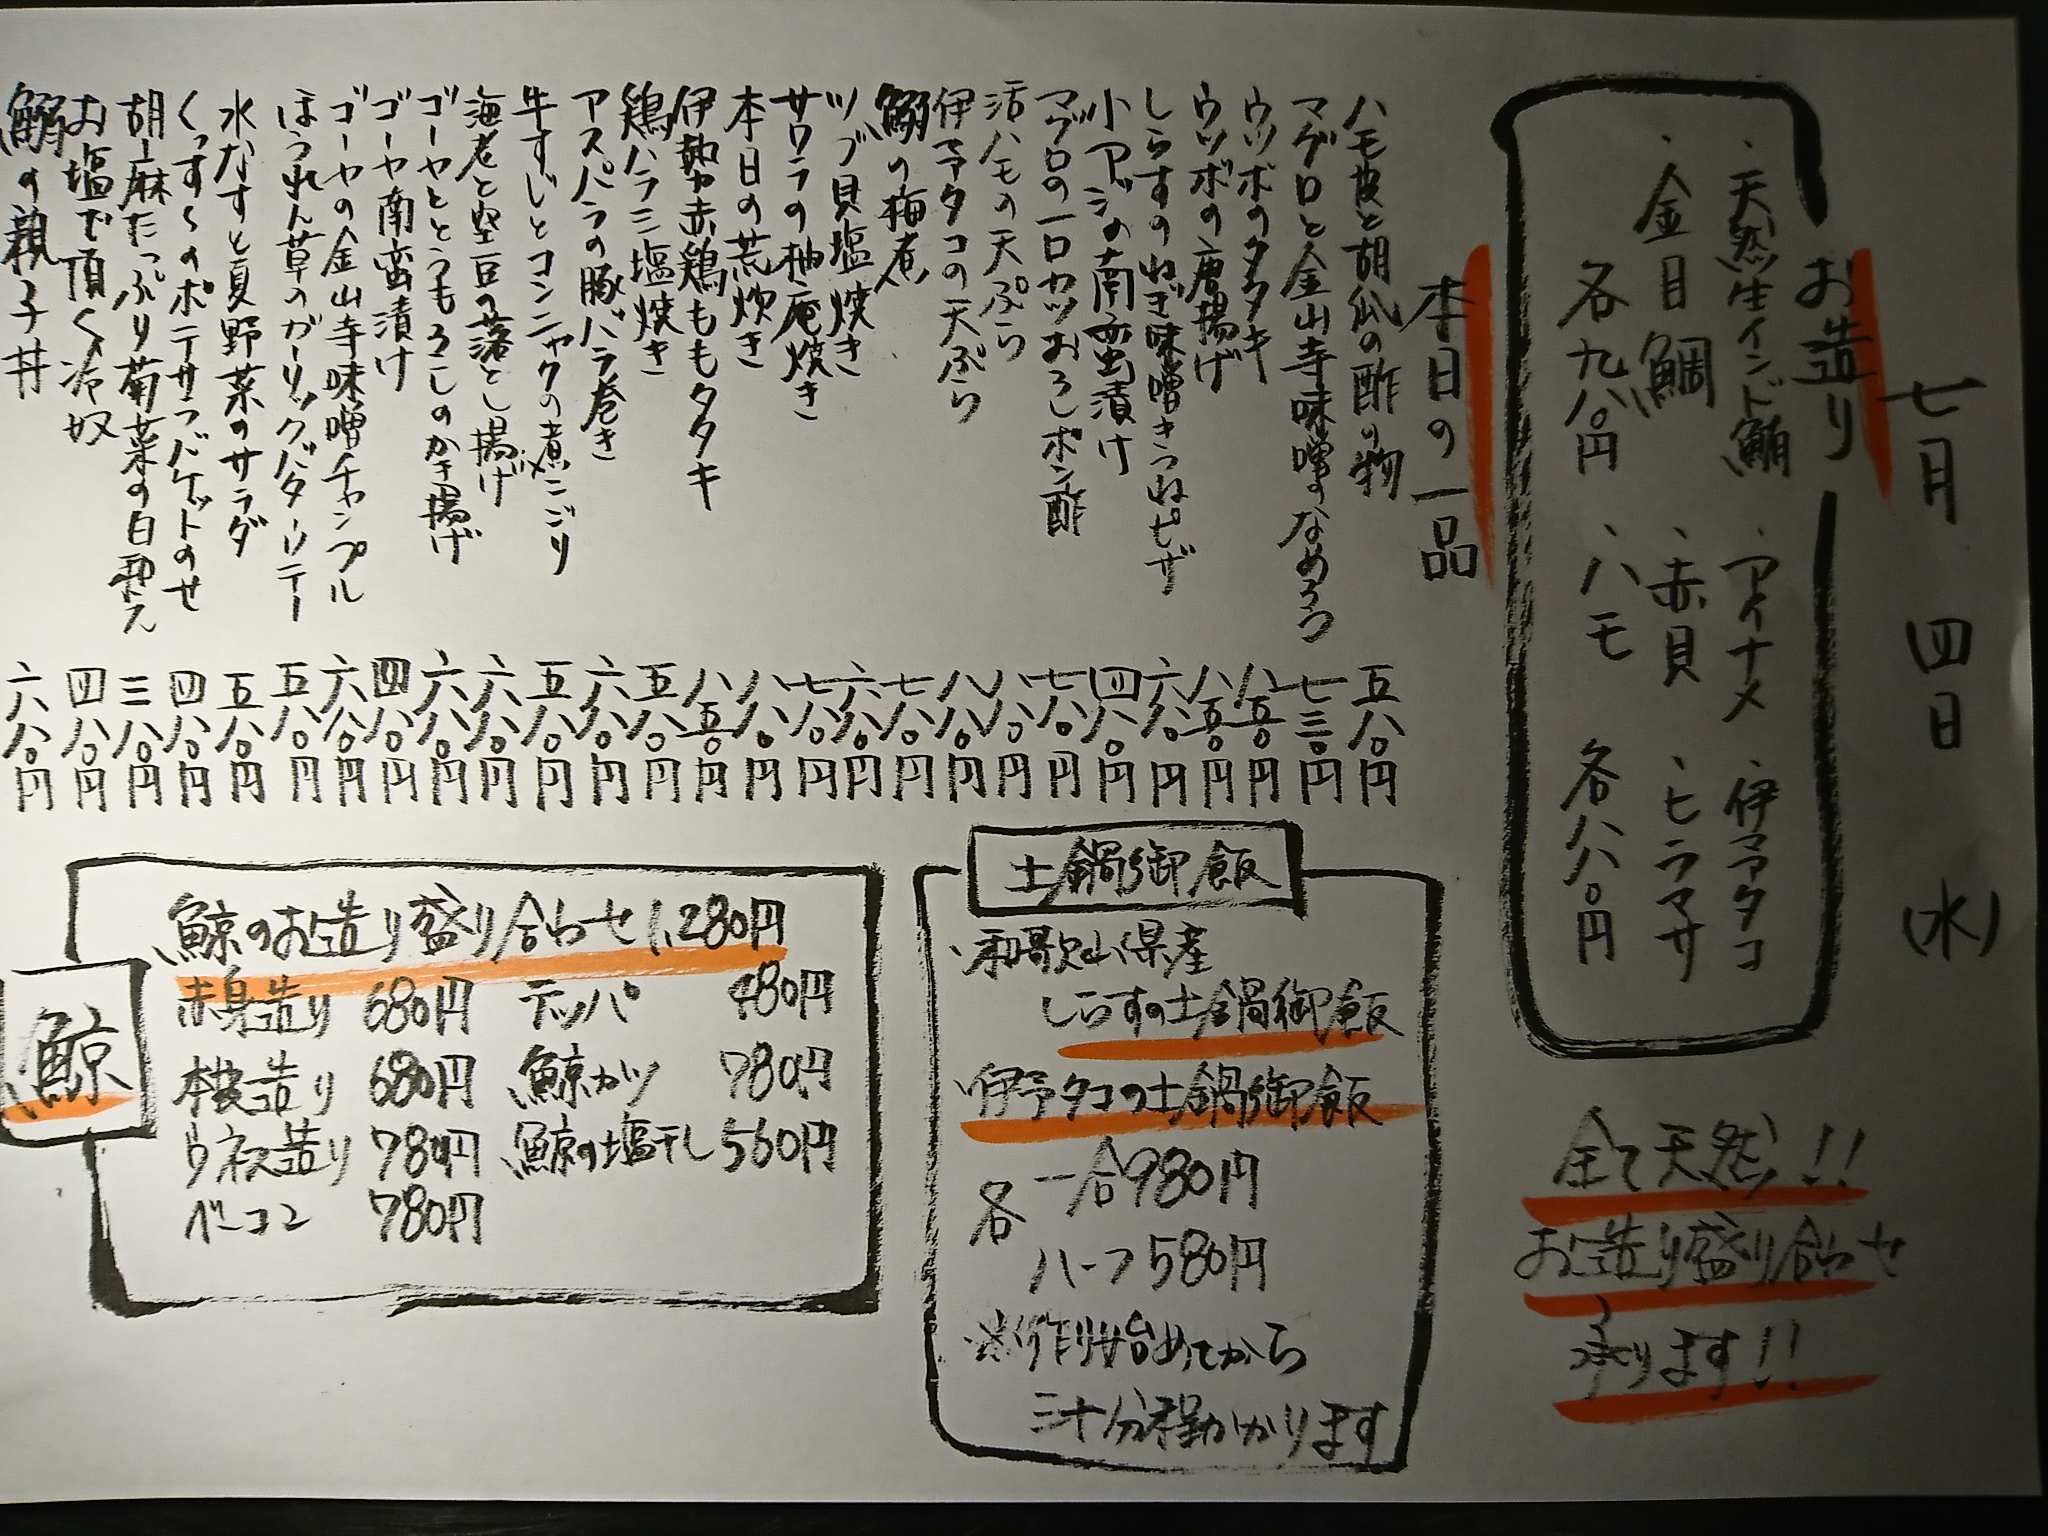 七月 四日 (水)
お造り
・天然生インド鮪 ・アイナメ ・伊予タコ
・金目鯛 ・赤貝 ・ヒラマサ
各九八〇円 ・ハモ 各八八〇円
全て天然!!
お造り盛り合わせ
承ります!!
本日の一品
ハモ皮と胡瓜の酢の物 五八〇円
マグロと金山寺味噌のなめろう 七三〇円
ウツボのタタキ 八五〇円
ウツボの唐揚げ 八五〇円
しらすのねぎ味噌きつねピザ 六八〇円
小アジの南蛮漬け 四八〇円
マグロの一口カツおろしポン酢 七八〇円
活ハモの天ぷら 八八〇円
伊予タコの天ぷら 八八〇円
鰯の梅煮 七八〇円
ツブ貝塩焼き 六八〇円
サワラの柚庵焼き 七八〇円
本日の荒炊き 八八〇円
伊勢赤鶏ももタタキ 八五〇円
鶏ハラミ塩焼き 五八〇円
アスパラの豚バラ巻き 六八〇円
牛すじとコンニャクの煮こごり 五八〇円
海老と空豆の落とし揚げ 六八〇円
ゴーヤととうもろこしのかき揚げ 六八〇円
ゴーヤ南蛮漬け 四八〇円
ゴーヤの金山寺味噌チャンプル 六八〇円
ほうれん草のガーリックバターソテー 五八〇円
水なすと夏野菜のサラダ 五八〇円
くっす〜のポテサラバゲットのせ 四八〇円
胡麻たっぷり菊菜の白和え 三八〇円
お塩で頂く冷奴 四八〇円
の親子丼 六八〇円
土鍋御飯
・和歌山県産
しらすの土鍋御飯
・伊予タコの土鍋御飯
各 一合980円
ハーフ580円
※作り始めてから
三十分程かかります
鯨
鯨のお造り盛り合わせ 1,280円
赤身造り 680円 テッパ 480円
本皮造り 680円 鯨カツ 780円
ウネス造り 780円 鯨の塩干し 560円
ベーコン 780円